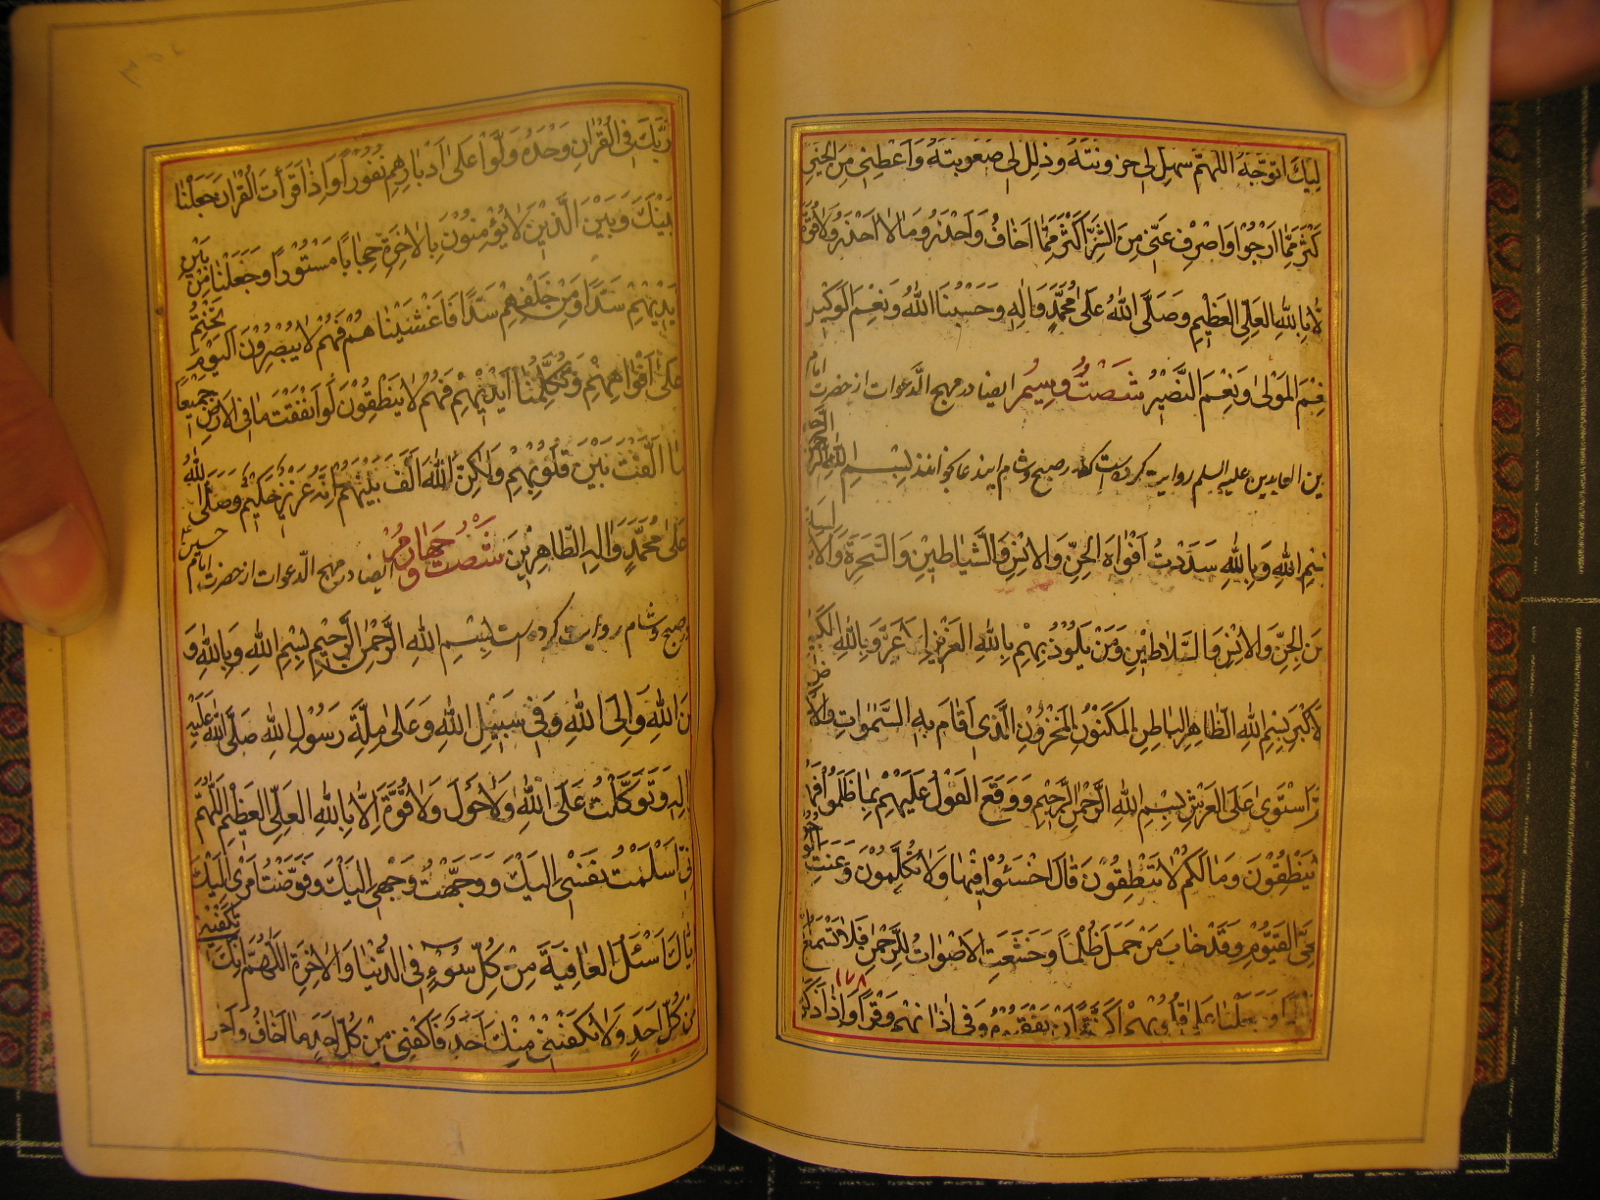 ليك اتوجه اللهم سهل لي حزونته وذلل لي صعوبته واعطني من الخير
كثر مما ارجوا واصرف عني من الشر اكثر مما اخاف واحذر وما لا احذر ولا قوة
لا بالله العلي العظيم وصلى الله على محمد واله وحسبنا الله ونعم الوكيل
فنعم المولى ونعم النصير شصت و سيم ايضا در مهج الدعوات از حضرت امام
ين العابدين عليه السلم روايت كرده است كه در صبح و شام ايندعا بخوانند بسم الله الرحمن الرحيم
بسم الله وبالله سددت افواه الجن والانس والشياطين والسحرة والابالسة
من الجن والانس والسلاطين ومن يلوذ بهم بالله العزيز الاعز وبالله الكبير
لاكبر بسم الله الظاهر الباطن المكنون المخزون الذي اقام به السموات والارض
ثم استوى على العرش بسم الله الرحمن الرحيم ووقع القول عليهم بما ظلموا فهم
لا ينطقون ومالكم لا تنطقون قال اخسئوا فيها ولا تكلمون وعنت الوجوه
للحي القيوم وقد خاب من حمل ظلما وخشعت الاصوات للرحمن فلا تسمع الا
١٧٨
وجعلنا على قلوبهم اكنة ان يفقهوه وفي اذانهم وقرا واذا ذكرت
ربك في القران وحده ولوا على ادبارهم نفورا واذا قرات القران جعلنا
بينك وبين الذين لا يؤمنون بالاخرة حجابا مستورا وجعلنا من بين
يديهم سدا ومن خلفهم سدا فاغشيناهم فهم لا يبصرون اليوم نختم
على افواههم وتكلمنا ايديهم فهم لا ينطقون لو انفقت ما في الارض جميعا
ما الفت بين قلوبهم ولكن الله الف بينهم انه عزيز حكيم وصلى الله
على محمد واله الطاهرين شصت و چهارم ايضا در مهج الدعوات از حضرت امام حسين
در صبح و شام روايت كرده است بسم الله الرحمن الرحيم بسم الله وبالله و
من الله والى الله وفي سبيل الله وعلى ملة رسول الله صلى الله عليه
واله وتوكلت على الله ولا حول ولا قوة الا بالله العلي العظيم اللهم
اني اسلمت نفسي اليك ووجهت وجهي اليك وفوضت امري اليك
اياك اسئل العافية من كل سوء في الدنيا والاخرة اللهم انك تكفيني
من كل احد ولا تكفيني منك احد فاكفني من كل احد ما اخاف واحذر